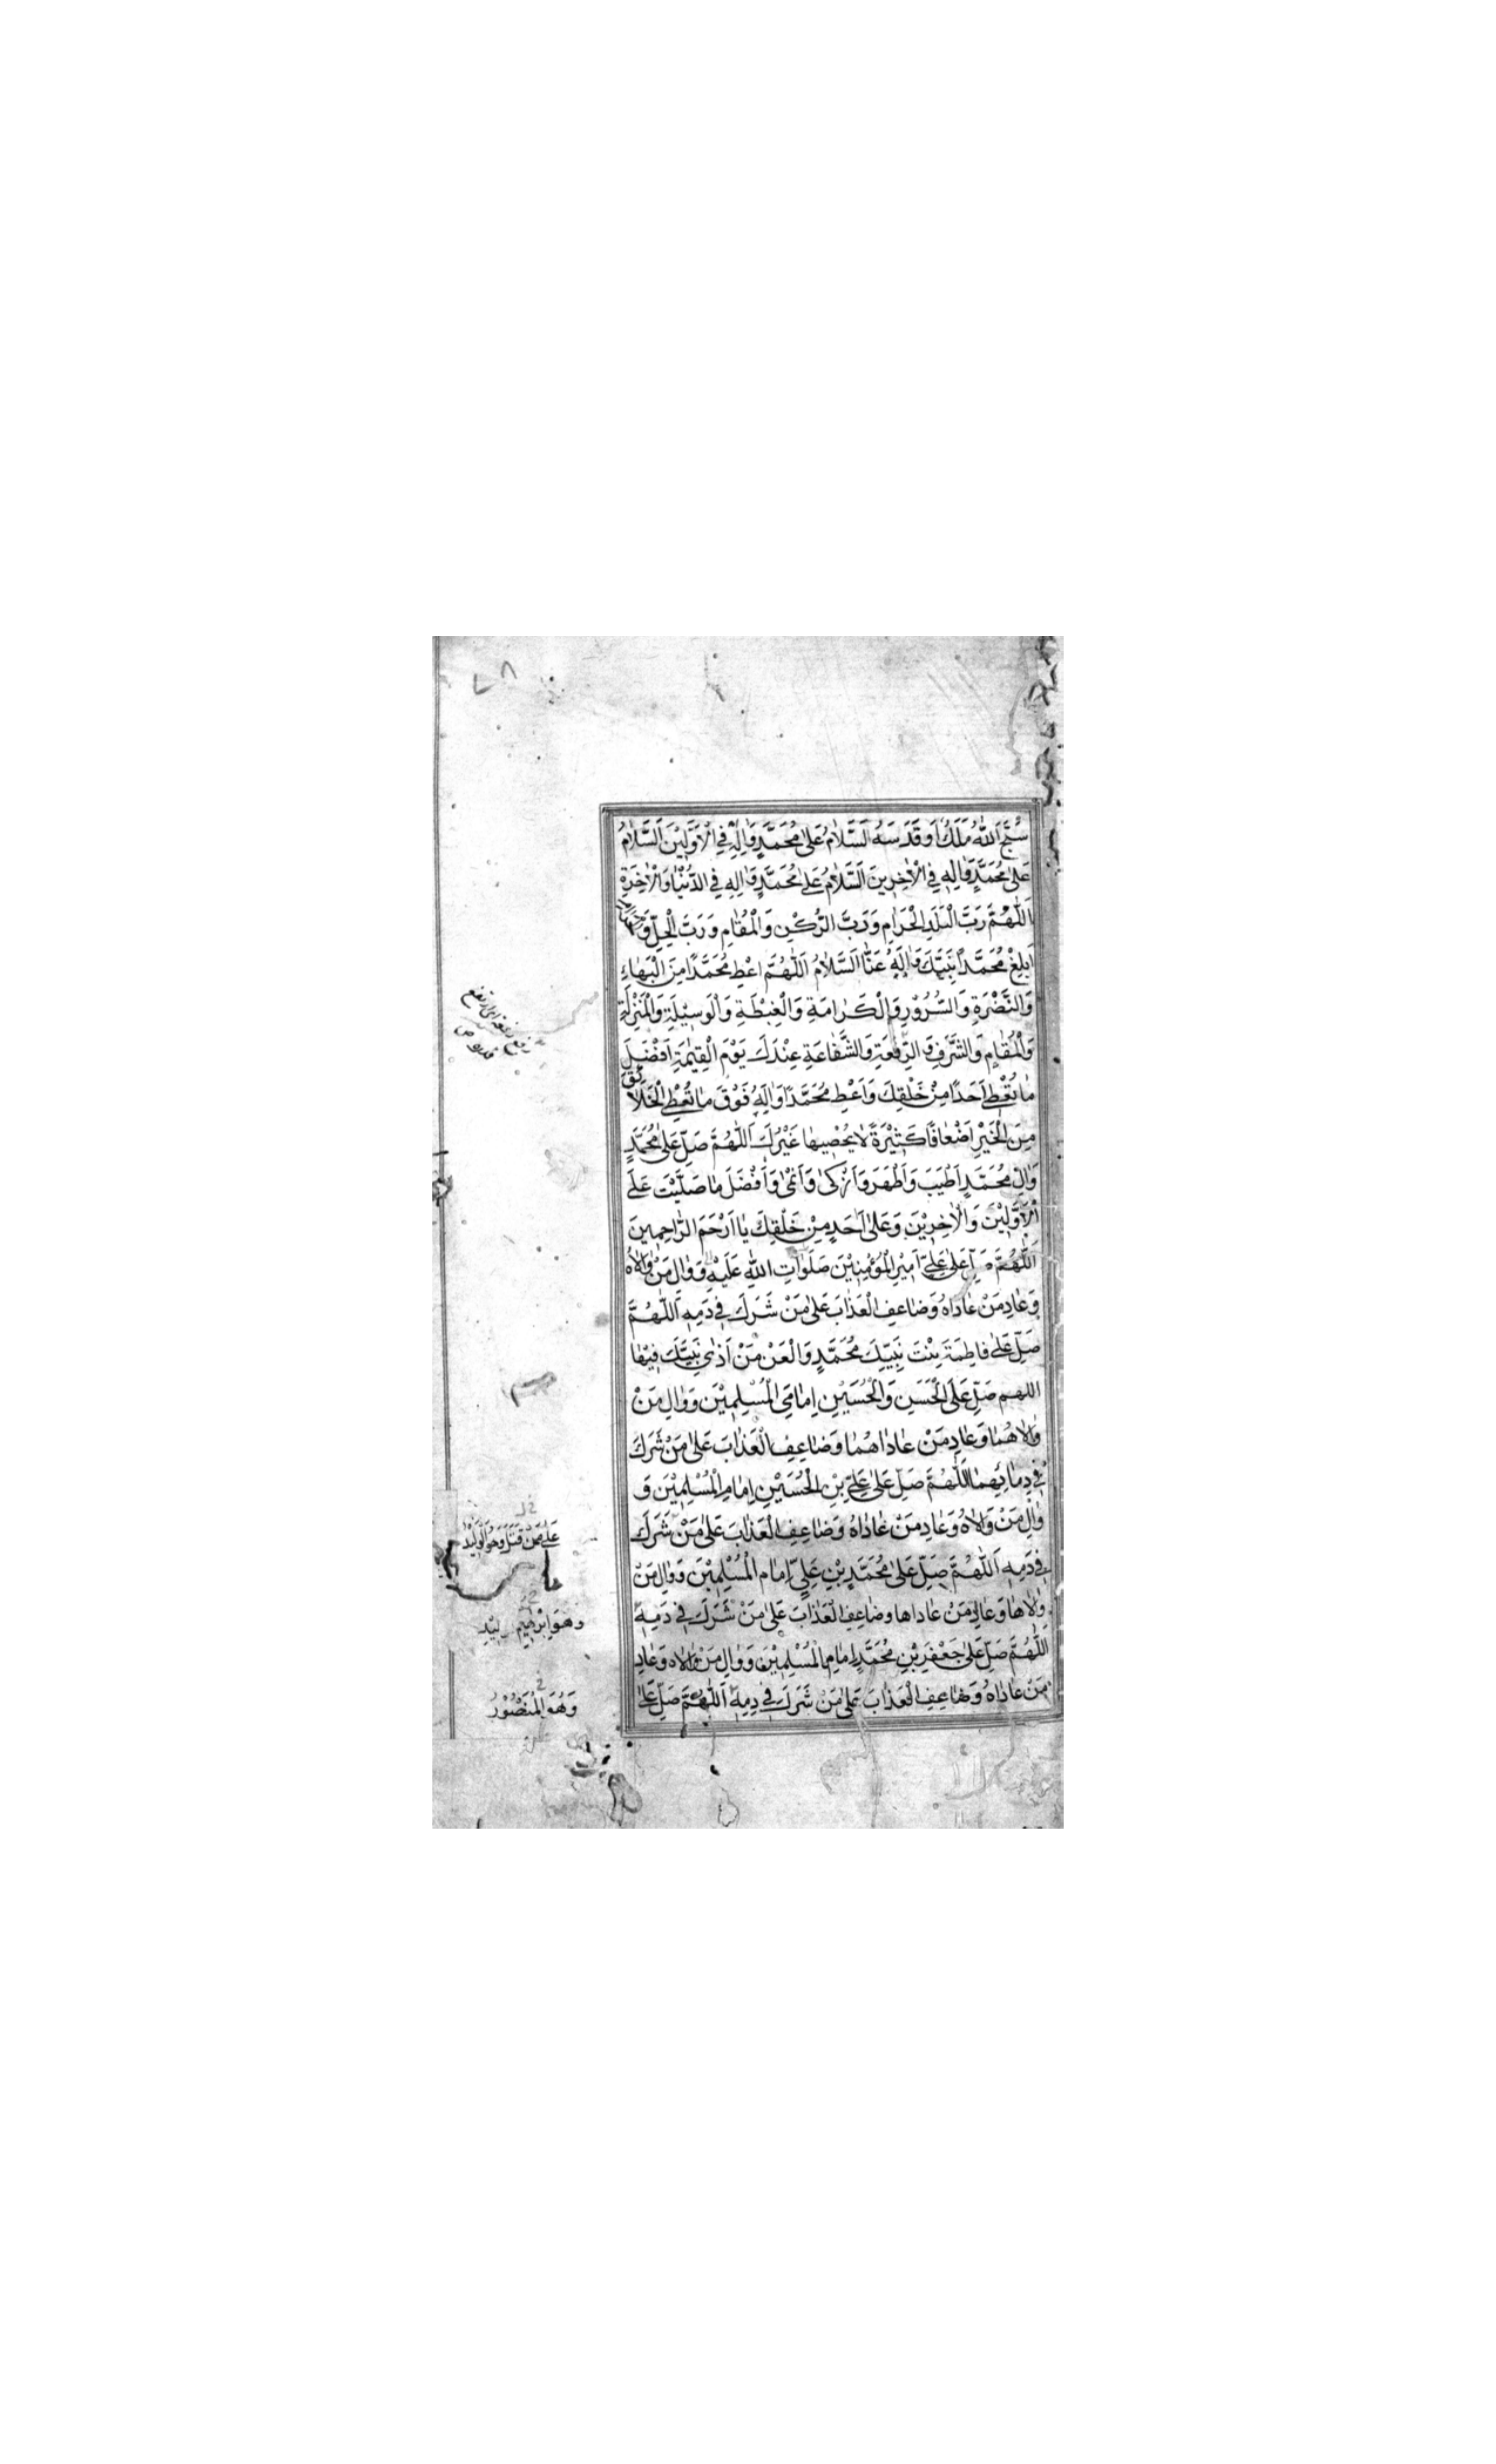 سَبَّحَ اللهُ مَلَكٌ اَوْ قَدَّسَهُ اَلسَّلَامُ عَلىٰ مُحَمَّدٍ وَاٰلِهٖ فِى الْاَوَّلِيْنَ اَلسَّلَامُ
عَلىٰ مُحَمَّدٍ وَاٰلِهٖ فِى الْاٰخِرِيْنَ اَلسَّلَامُ عَلىٰ مُحَمَّدٍ وَاٰلِهٖ فِى الدُّنْيَا وَالْاٰخِرَةِ
اَللّٰهُمَّ رَبَّ الْبَلَدِ الْحَرَامِ وَرَبَّ الرُّكْنِ وَالْمَقَامِ وَرَبَّ الْحِلِّ وَ
اَبْلِغْ مُحَمَّدًا نَبِيَّكَ وَاٰلَهُ عَنَّا السَّلَامُ اَللّٰهُمَّ اعْطِ مُحَمَّدًا مِنَ الْبَهَاءِ
وَالنَّضْرَةِ وَالسُّرُوْرِ وَالْكَرَامَةِ وَالْغِبْطَةِ وَالْوَسِيْلَةِ وَالْمَنْزِلَةِ
وَالْمَقَامِ وَالشَّرَفِ وَالرِّفْعَةِ وَالشَّفَاعَةِ عِنْدَكَ يَوْمَ الْقِيٰمَةِ اَفْضَلَ
مَا تُعْطِى اَحَدًا مِنْ خَلْقِكَ وَاَعْطِ مُحَمَّدًا وَاٰلَهُ فَوْقَ مَا تُعْطِى الْخَلَائِقَ
مِنَ الْخَيْرِ اَضْعَافًا كَثِيْرَةً لَا يُحْصِيْهَا غَيْرُكَ اَللّٰهُمَّ صَلِّ عَلىٰ مُحَمَّدٍ
وَاٰلِ مُحَمَّدٍ اَطْيَبَ وَاَطْهَرَ وَاَزْكىٰ وَاَنْمىٰ وَاَفْضَلَ مَا صَلَّيْتَ عَلىٰ
الْاَوَّلِيْنَ وَالْاٰخِرِيْنَ وَعَلىٰ اَحَدٍ مِنْ خَلْقِكَ يَا اَرْحَمَ الرَّاحِمِيْنَ
اَللّٰهُمَّ صَلِّ عَلىٰ عَلِىٍّ اَمِيْرِ الْمُؤْمِنِيْنَ صَلَوَاتُ اللهِ عَلَيْهِ وَوَالِ مَنْ وَالَاهُ
وَعَادِ مَنْ عَادَاهُ وَضَاعِفِ الْعَذَابَ عَلىٰ مَنْ شَرَكَ فِىْ دَمِهٖ اَللّٰهُمَّ
صَلِّ عَلىٰ فَاطِمَةَ بِنْتِ نَبِيِّكَ مُحَمَّدٍ وَالْعَنْ مَنْ اٰذىٰ نَبِيَّكَ فِيْهَا
اللهم صَلِّ عَلَى الْحَسَنِ وَالْحُسَيْنِ اِمَامَىِ الْمُسْلِمِيْنَ وَوَالِ مَنْ
وَالَاهُمَا وَعَادِ مَنْ عَادَاهُمَا وَضَاعِفِ الْعَذَابَ عَلىٰ مَنْ شَرَكَ
فِىْ دِمَائِهِمَا اَللّٰهُمَّ صَلِّ عَلىٰ عَلِىِّ بْنِ الْحُسَيْنِ اِمَامِ الْمُسْلِمِيْنَ وَ
وَالِ مَنْ وَالَاهُ وَعَادِ مَنْ عَادَاهُ وَضَاعِفِ الْعَذَابَ عَلىٰ مَنْ شَرَكَ
فِىْ دَمِهٖ اَللّٰهُمَّ صَلِّ عَلىٰ مُحَمَّدِ بْنِ عَلِىٍّ اِمَامِ الْمُسْلِمِيْنَ وَوَالِ مَنْ
وَالَاهَا وَعَادِ مَنْ عَادَاهَا وَضَاعِفِ الْعَذَابَ عَلىٰ مَنْ شَرَكَ فِىْ دَمِهٖ
اَللّٰهُمَّ صَلِّ عَلىٰ جَعْفَرِ بْنِ مُحَمَّدٍ اِمَامِ الْمُسْلِمِيْنَ وَوَالِ مَنْ وَالَاهُ وَعَادِ
مَنْ عَادَاهُ وَضَاعِفِ الْعَذَابَ عَلىٰ مَنْ شَرَكَ فِىْ دَمِهٖ اَللّٰهُمَّ صَلِّ عَلىٰ
عَلىٰ مَنْ قَتَلَهُ وَهُوَ الْوَلِيْدُ
وَهُوَ اِبْرٰهِيْمُ
وَهُوَ الْمَنْصُوْرُ